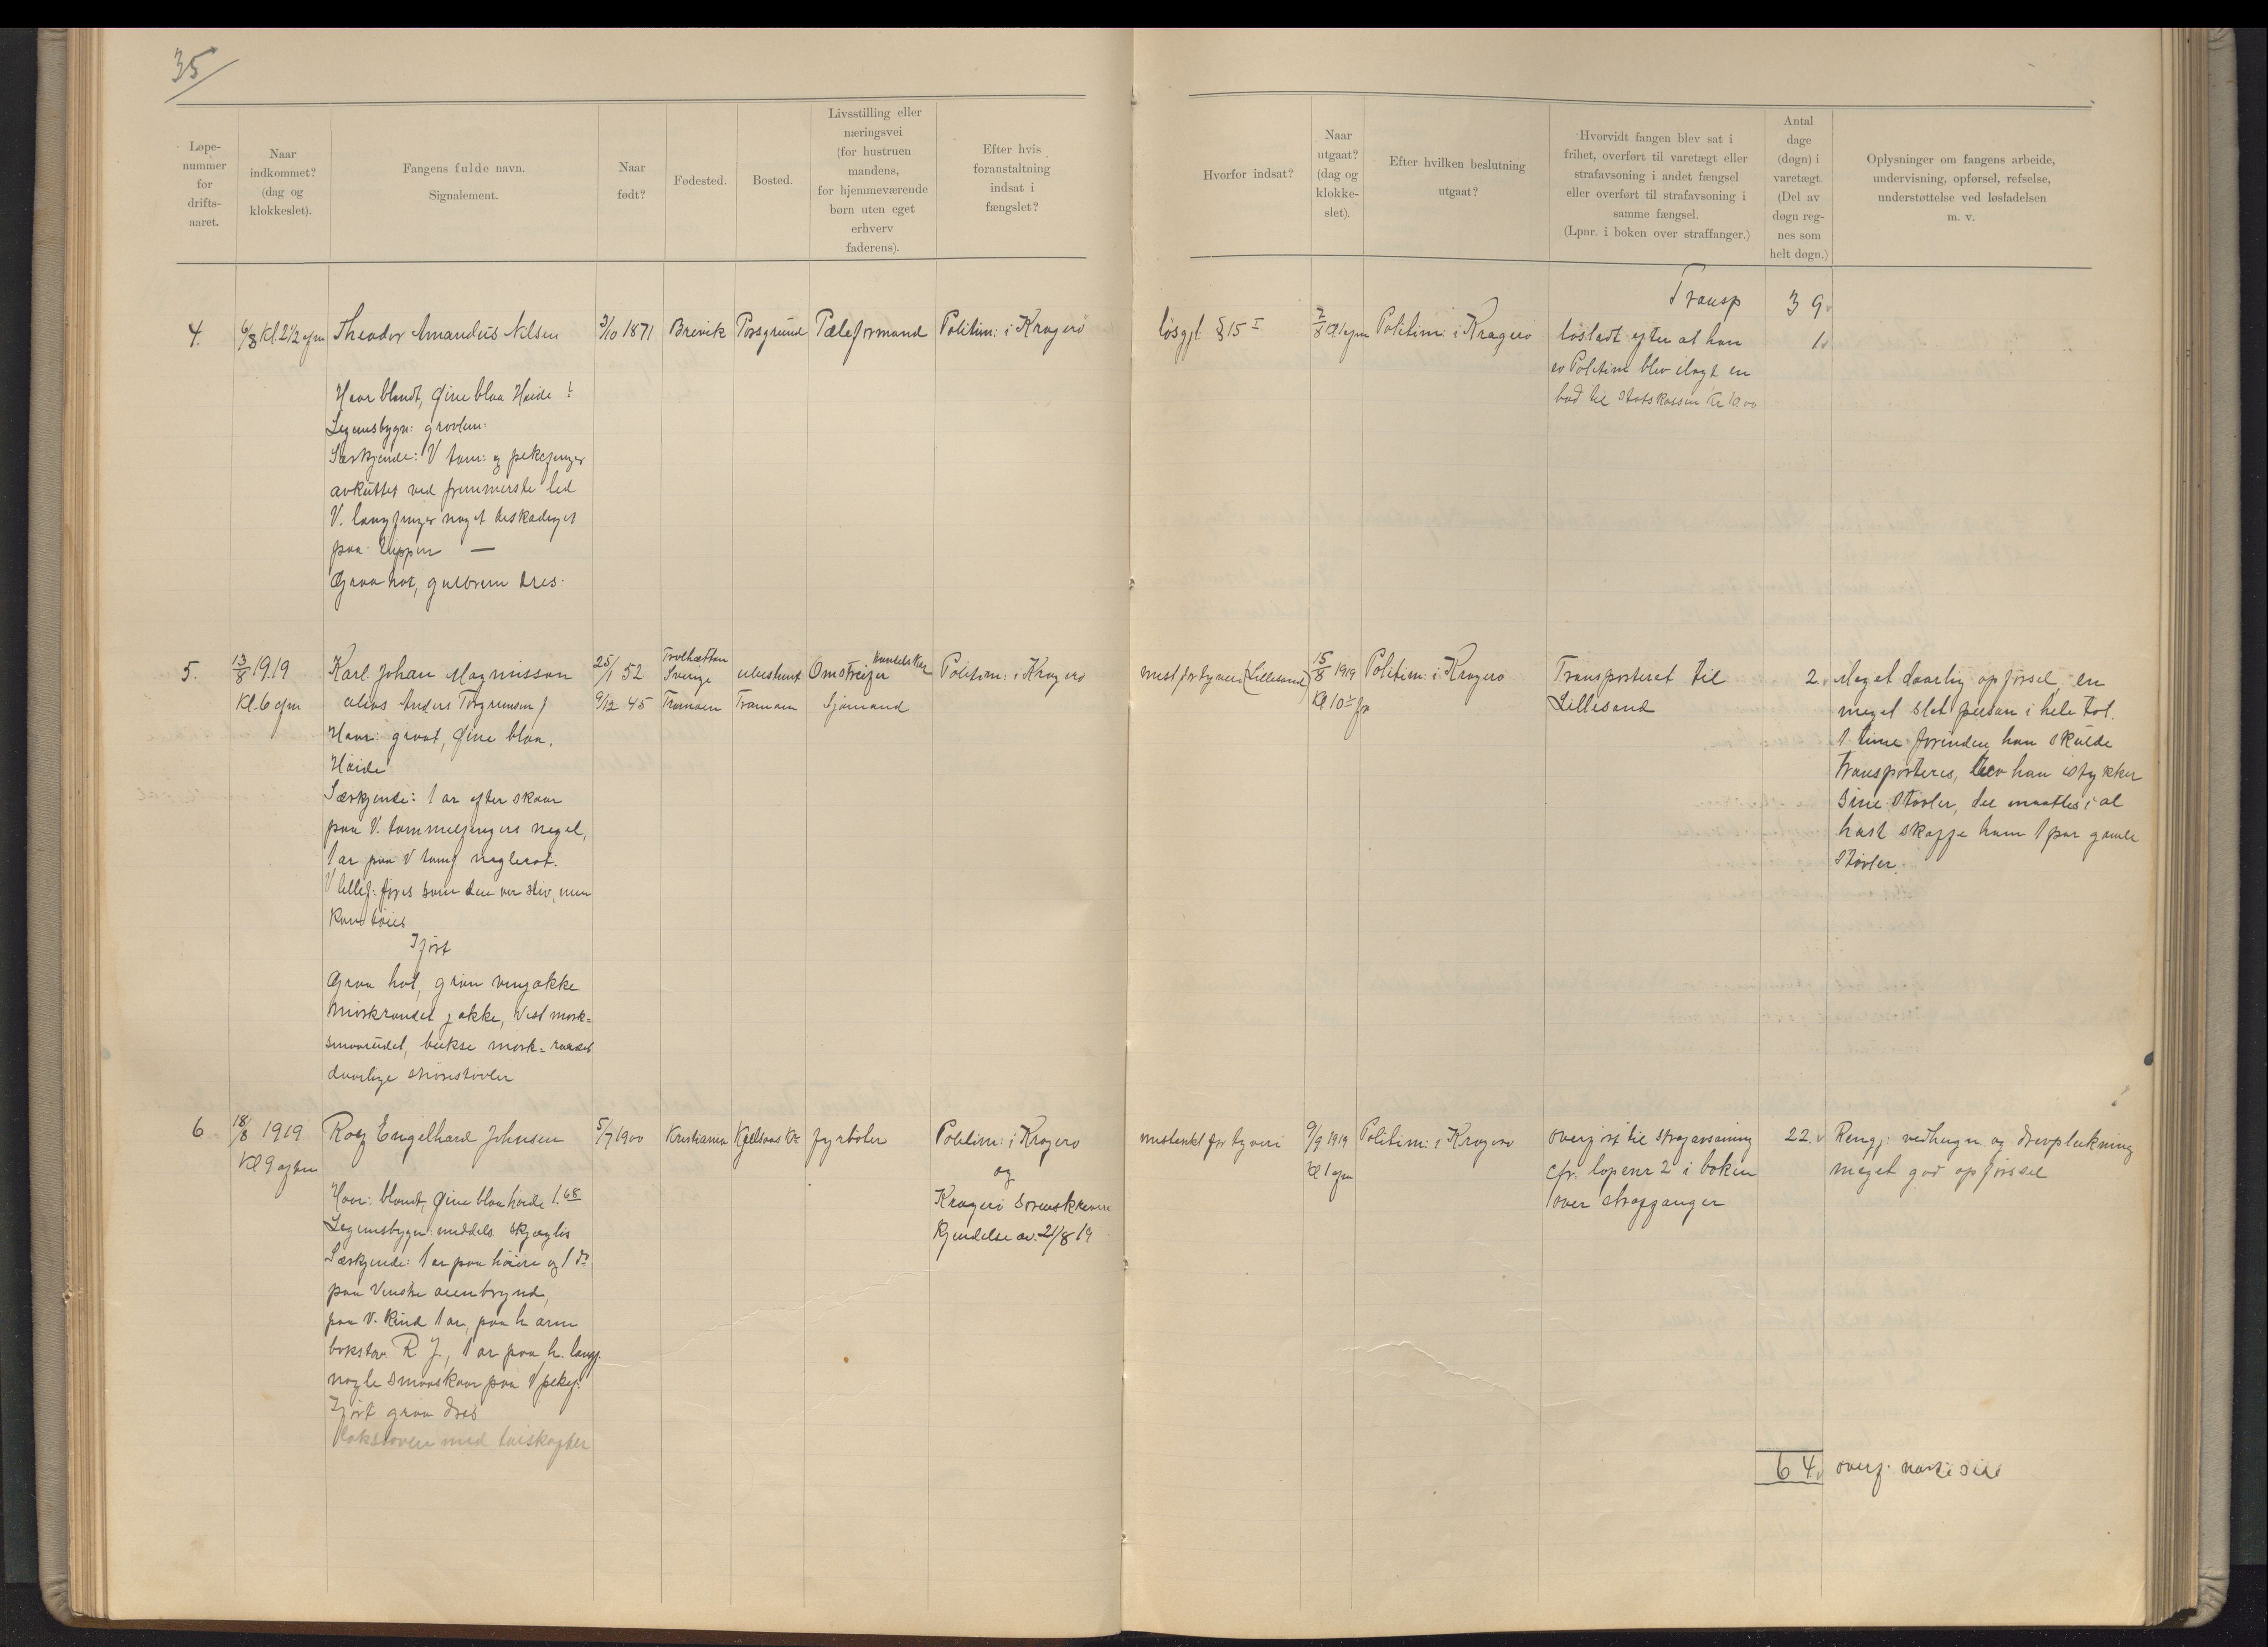 35
Løpe-
nummer
for
drifts-
aaret.
Naar
indkommet?
(dag og
klokkeslet).
Fangens fulde navn.
Signalement.
Naar
født?
Fødested.
Bosted.
Livsstilling eller
næringsvei
(for hustruen
mandens,
for hjemmeværende
børn uten eget
erhverv
faderens).
Efter hvis
foranstaltning
indsat i
fængslet?
Hvorfor indsat?
Naar
utgaat?
(dag og
klokke-
slet).
Efter hvilken beslutning
utgaat?
Hvorvidt fangen blev sat i
frihet, overført til varetægt eller
strafavsoning i andet fængsel
eller overført til strafavsoning i
samme fængsel.
(Lpnr. i boken over straffanger.)
Antal
dage
(døgn) i
varetægt.
(Del av
døgn reg-
nes som
helt døgn.)
Oplysninger om fangens arbeide,
undervisning, opførsel, refselse,
understøttelse ved løsladelsen
m. v.
Transp 39
4. 6/8 Kl. 2 1/2 efm Theodor Amandus Nelsen 3/10 1871 Brevik Porsgrund Pæleformand Politim: i Kragerø
løsgjl. § 15 I 7/8 Kl 1 efm Politim: i Kragerø løsladt efter at han 1
av Politim blev ilagt en
bod til Statskassen Kr 10.00
Haar blondt, Øine blaa Høide ?
Legemsbygn: grovlem:
Særkjende: V tom: og pekefinger
avkuttet ved fremmerste led
V. langfinger noget beskadiget
paa tippen —
Graa hat, gulbrun dres.
5. 13/8 1919 Kl. 6 efm
Karl Johan Magnusson 25/1 52 Trolhættan Sverige ubestemt Omstreifer handelskar Politim: i Kragerø
alias Anders Torgrimsen 9/12 45 Tromøen Tromøen Sjømand
mist for tyveri (Lillesand) 15/8 1919 Kl 10 fm Politim: i Kragerø
Transporteret til
Lillesand
2. Meget daarlig opførsel, en
meget slet person i hele tat.
1 time forinden han skulde
transporteres, rev han istykker
sine støvler, det maattes i al
hast skaffe ham 1 par gamle
støvler.
Haar: graat, Øine blaa.
Høide
Særkjende: 1 ar efter skaar
paa V. tommelfingers negel,
1 ar paa V tomf neglerot.
V lillef: føres som den var stiv, men
kan bøies
Iført
Graa hat, grøn vinjakke
Mørkrandet jakke, Vest mørk=
smaarudet, bukse mørk=randet
daarlige snørestøvler
6 18/8 1919 Kl 9 aften
Rolf Engelhard Johnsen 5/7 1900 Kristiania Kjelsaas Kr. fyrbøter Politim: i Kragerø
og
Kragerø Sorenskriveri
Kjendelse av 21/8 19
mistenkt for tyveri 9/9 1919 Kl 1 efm Politim: i Kragerø
overført til strafavsoning
cfr. løpenr 2 i boken
over straffanger
22. Rengj: vedhugn. og drevplukning
meget god opførsel
Haar: blondt, Øine blaa høide 1.68
Legemsbygn: middels skjægløs
Særkjende: 1 ar paa høire og 1 do
paa Venstre øienbrynd,
paa V. Kind 1 ar, paa h arm
bokstav. R. J., 1 ar paa h. langf.
nogle smaaskaar paa V pekef:
Iført graa dres
64 overf. næste side